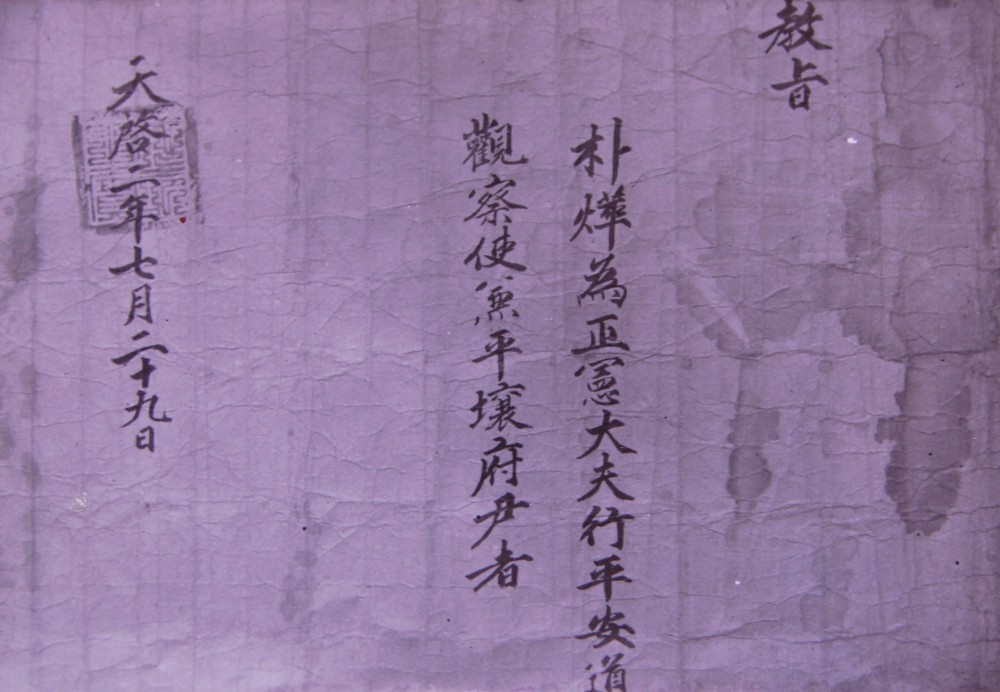 教旨
朴燁為正憲大夫行平安道
觀察使兼平壤府尹者
天啓二年七月二十九日